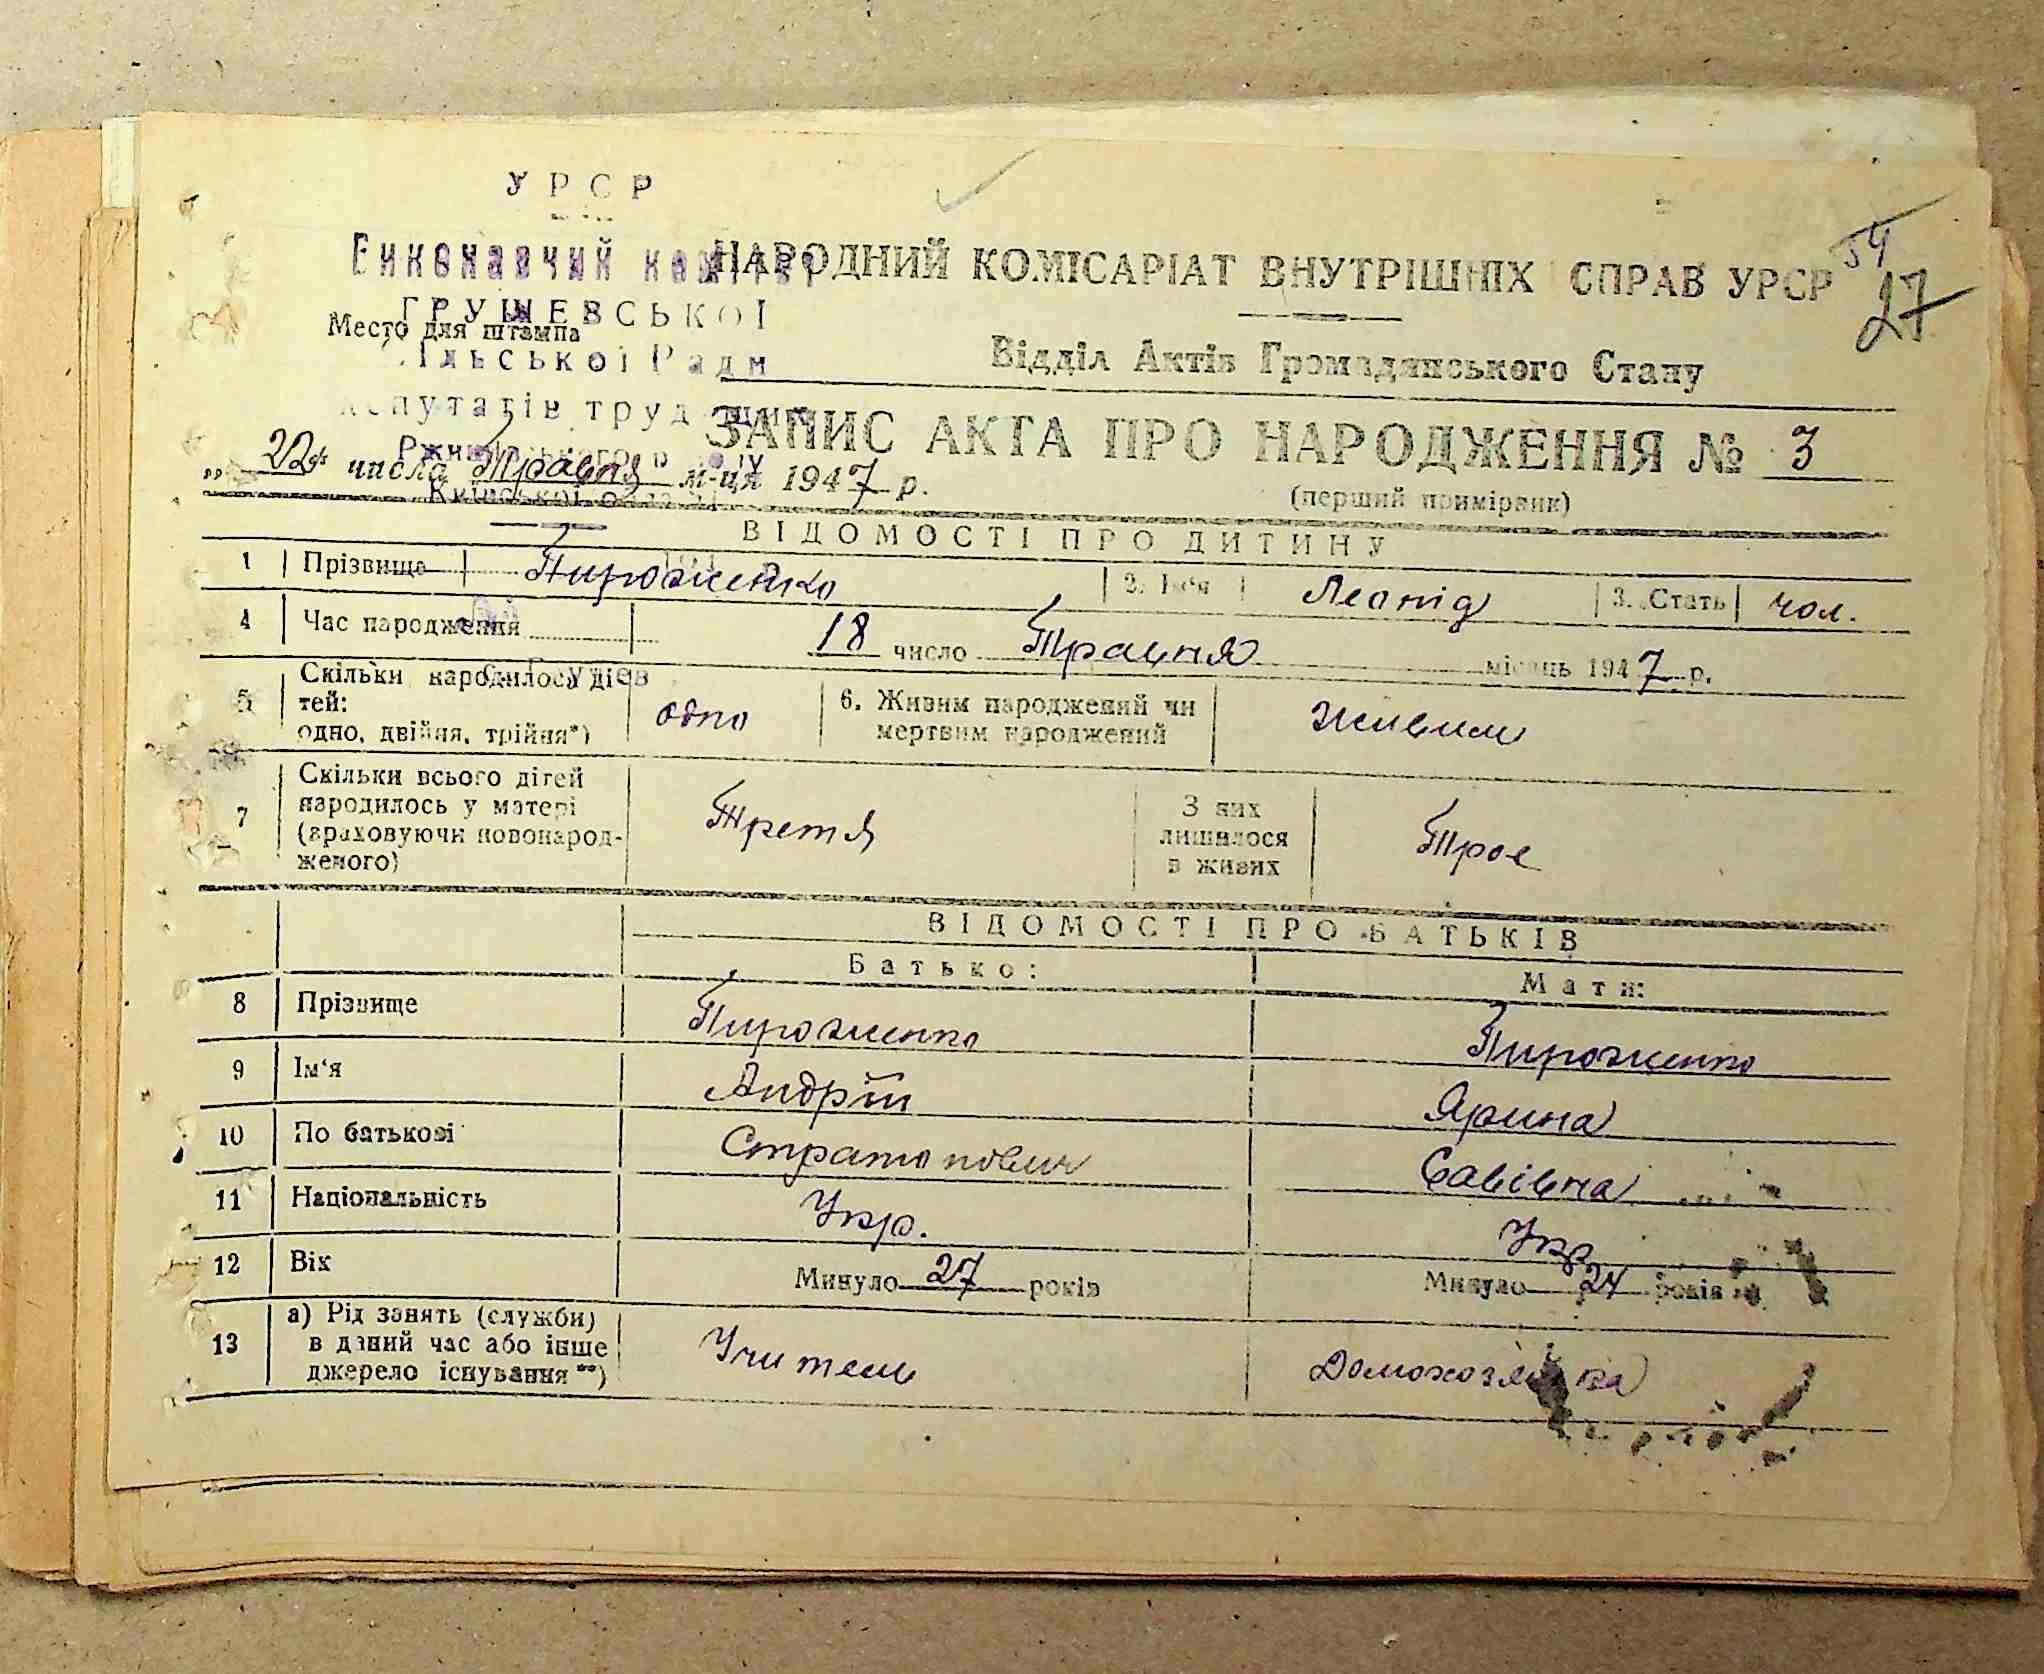 УРСР
Виконавчий комітет
ГРУШЕВСЬКОЇ
Место для штампа
Сільської Ради
депутатів трудящих
Ржищівського р-ну
Київської області
54
27
НАРОДНИЙ КОМІСАРІАТ ВНУТРІШНІХ СПРАВ УРСР
Відділ Актів Громадянського Стану
ЗАПИС АКТА ПРО НАРОДЖЕННЯ № 3
(перший примірник)
„ 22 " числа Травня м-ця 1947 р.
ВІДОМОСТІ ПРО ДИТИНУ
1 Прізвище Пироженко 2. Ім'я Леонід 3. Стать чол.
4 Час народження 18 число Травня місяць 1947 р.
5 Скільки народилось ді-
тей:
одно, двійня, трійня*) одно
6. Живим народжений чи
мертвим народжений живим
7 Скільки всього дітей
народилось у матері
(враховуючи новонарод-
женого) Третя
З них
лишилося
в живих Троє
ВІДОМОСТІ ПРО БАТЬКІВ
Батько: Мати:
8 Прізвище Пироженко Пироженко
9 Ім'я Андрій Ярина
10 По батькові Стратонович Савівна
11 Національність Укр. Укр
12 Вік Минуло 27 років Минуло 24 років
13 а) Рід занять (служби)
в даний час або інше
джерело існування **) Учитель Домохозяйка